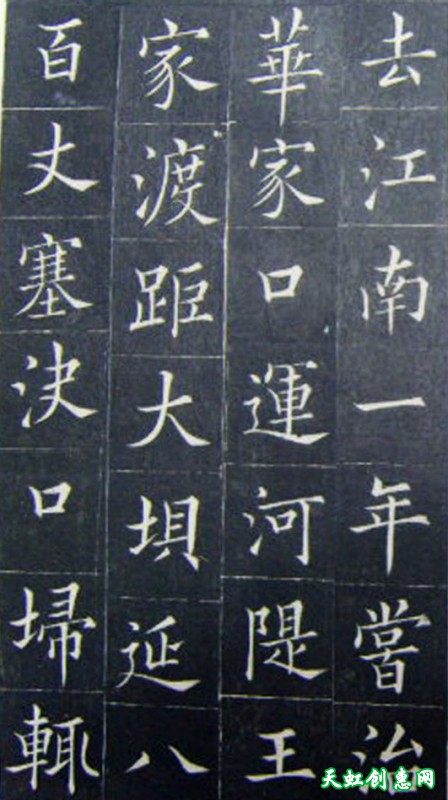 去江南一年嘗治
華家口運河隄王
家渡距大垻延八
百丈塞决口埽輒
天虹创惠网